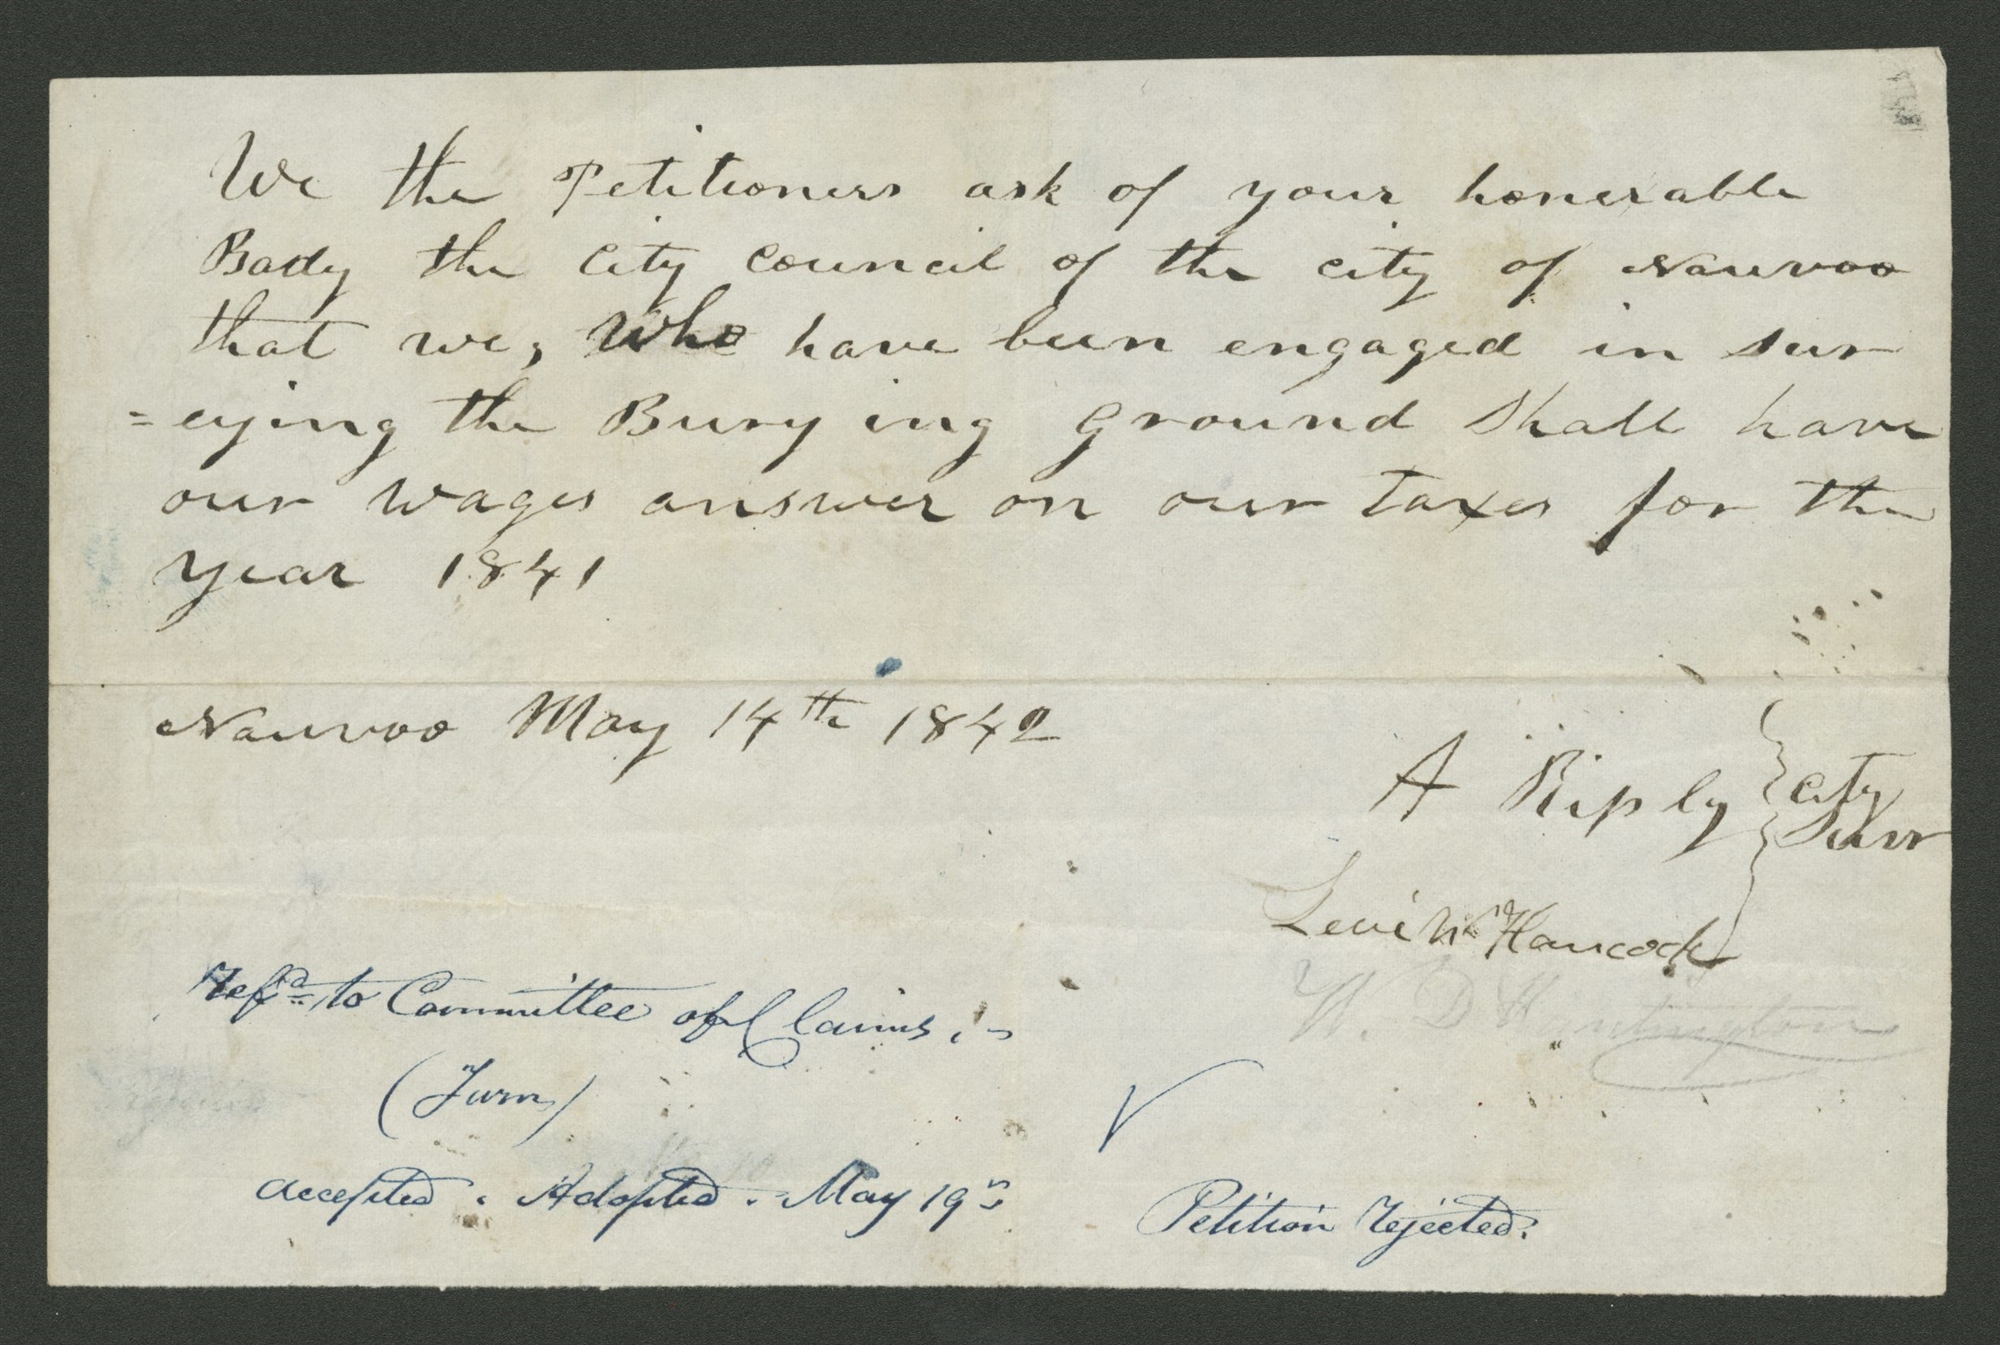 We the Petitioners ask of your honerable
Body the City Council of the city of Nauvoo
that we, Who have been engaged in sur
=eying the Burying ground Shall have
our wages answer on our taxes for the
year 1841
Nauvoo May 14th 1842
A Riply } City
Surv
Levi W Hancock
W. D Huntington
Refd to Committee of Claims, -
(Turn)
accepted. Adopted. - May 19th
Petition rejected.